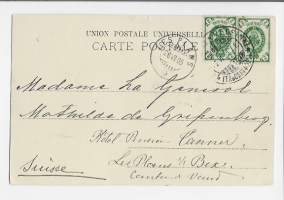 UNION POSTALE UNIVERSELLE
CARTE POSTALE
LES PLANS
Madame la General
Mathilda de Gripenberg
Hotel Pension Tanner
Les Plans s/ Bex
Canton d Vaud
Suisse